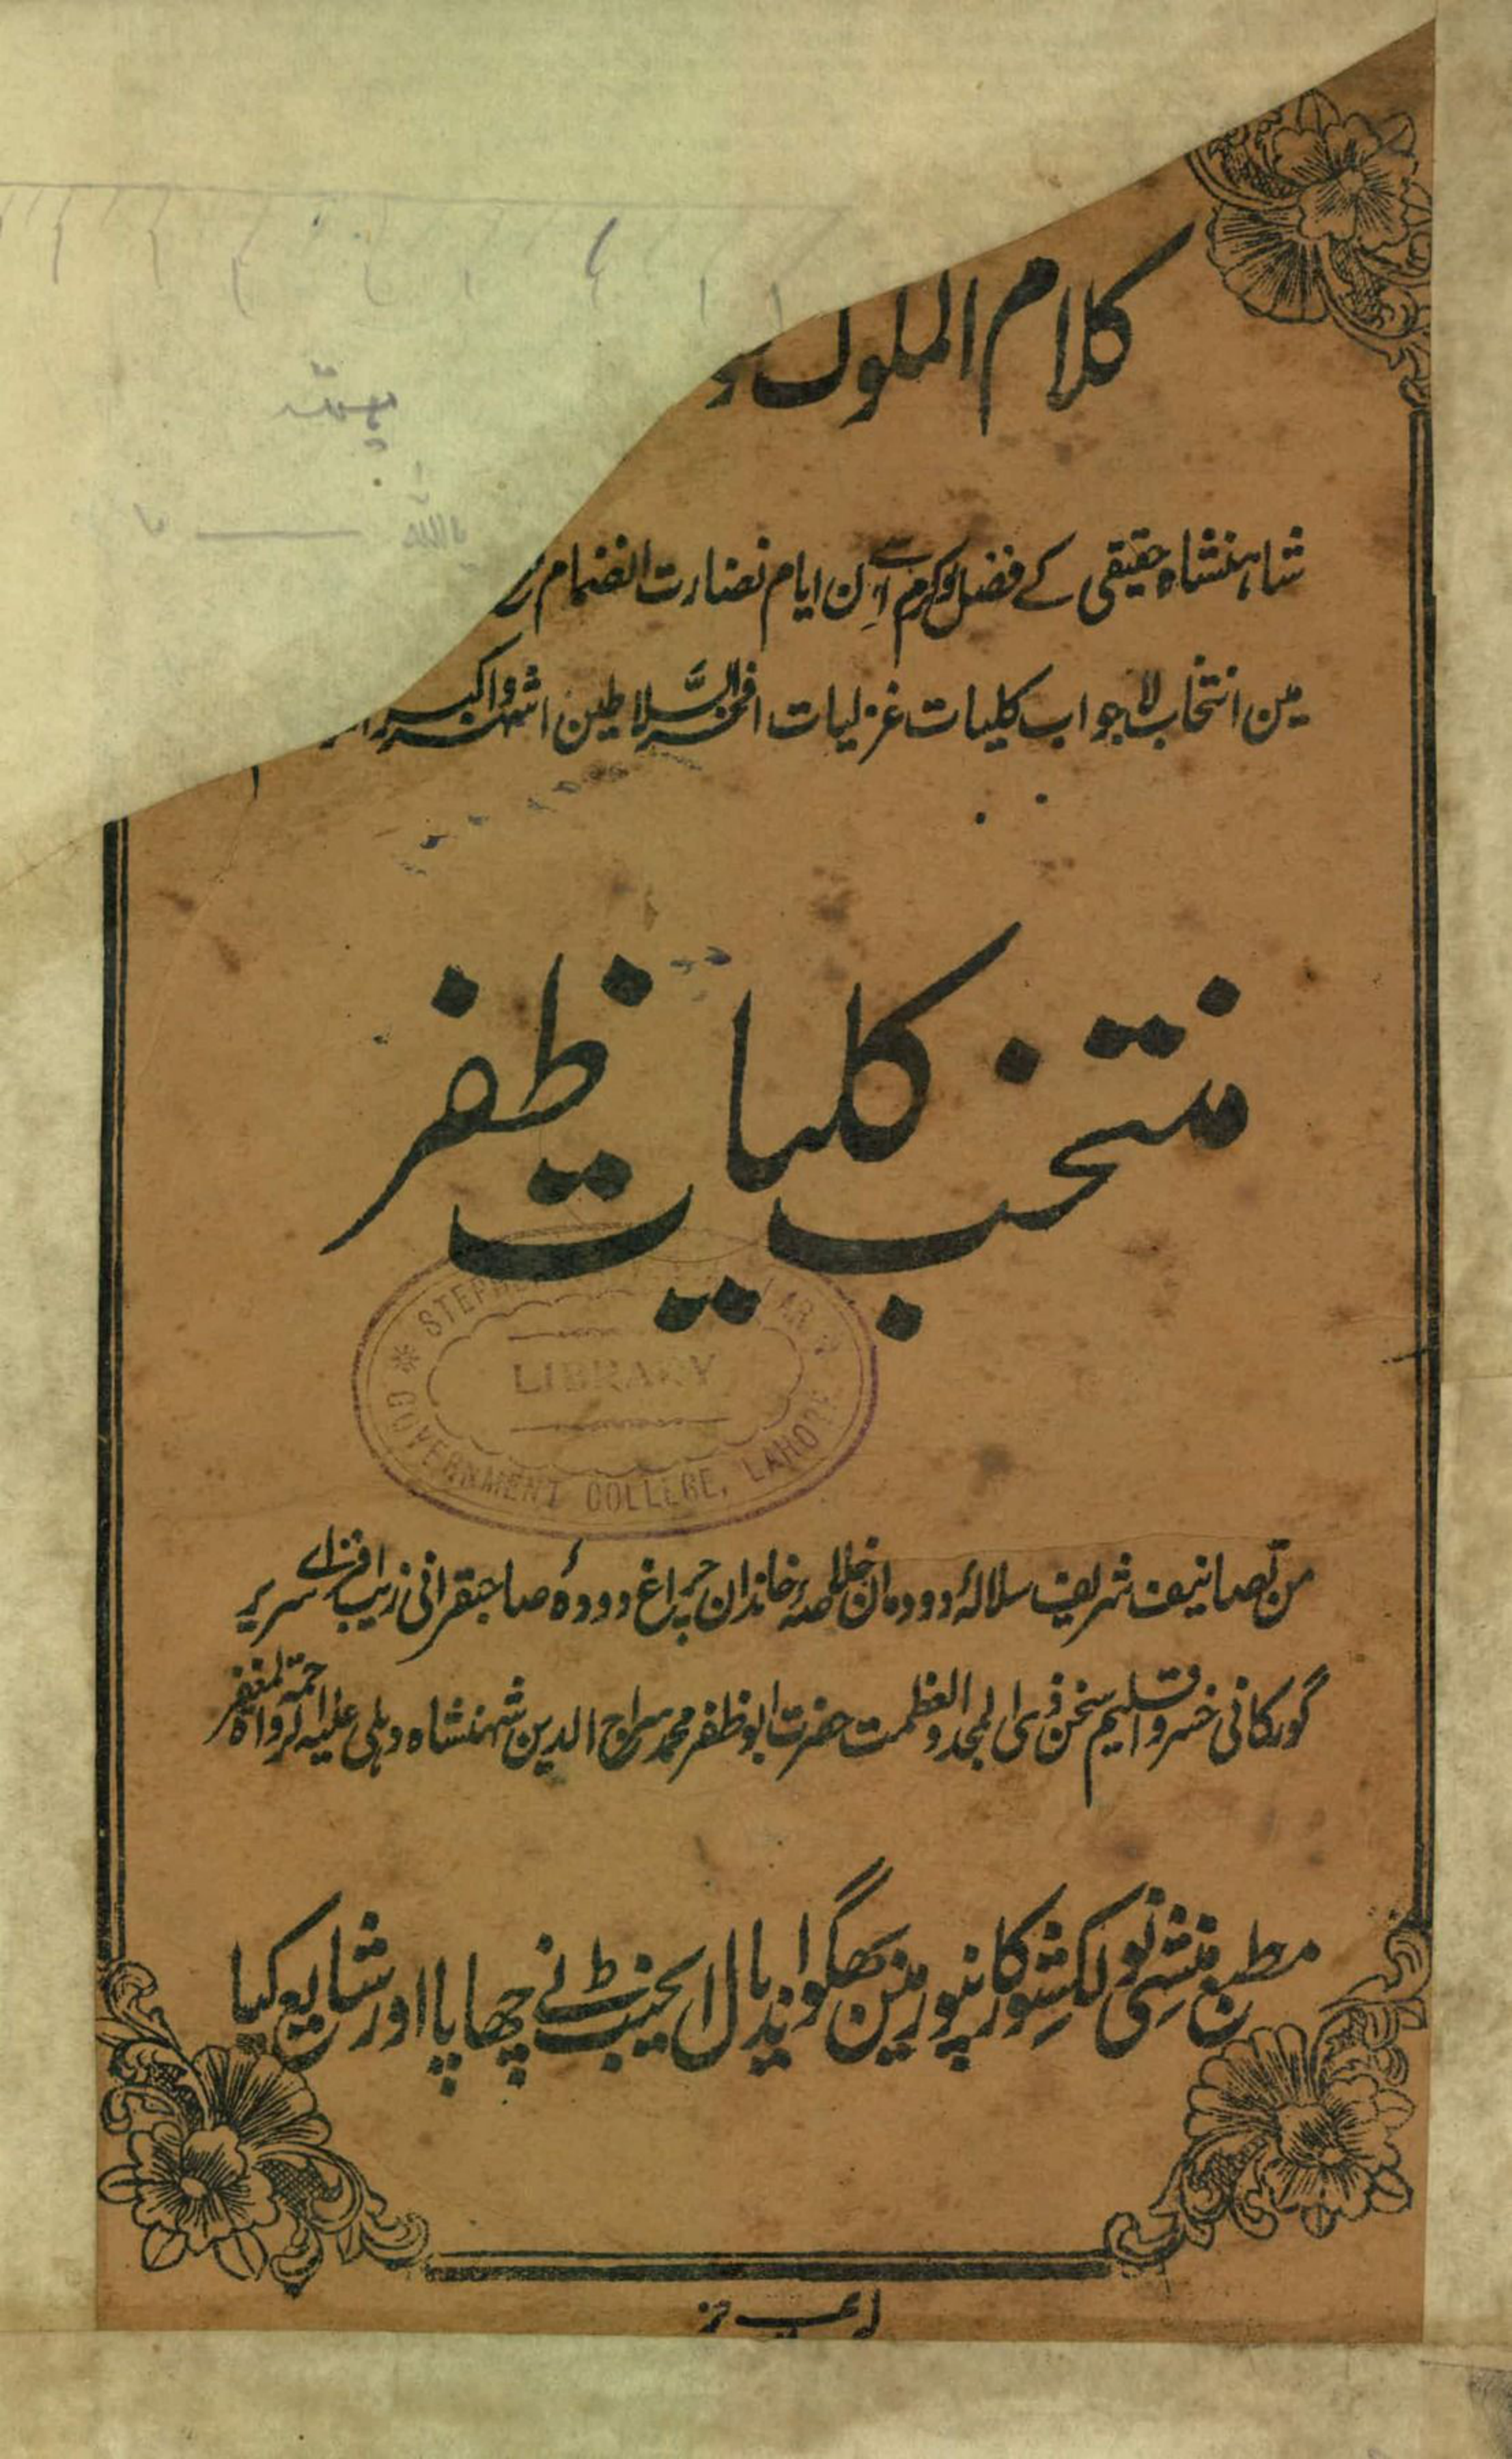 کلام الملوک
شاہنشاہ حقیقی کے فضل وکرم سے اِن ایام نضارت انضمام
مین انتخاب لاجواب کلیات غزلیات افخر السلاطین اشہر واکبر
منتخب کلیات ظفر
STEPHE
LIBRARY
GOVERNMENT COLLEGE, LAHORE
من تصانیف شریف سلالۂ دودمان خلاصۂ خاندان چراغ دودۂ صاحبقرانی زیب افزاے سریر
گورکانی خسرو اقلیم سخن ذی المجد والعظمت حضرت ابو ظفر محمد سراج الدین شہنشاہ دہلی علیہ الرحمۃ
مطبع منشی نولکشور کانپور مین بھگوان دیال ایجنٹ نے چھاپا اور شایع کیا